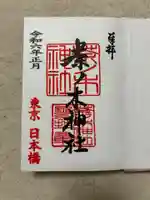 奉拝
茶ノ木神社
令和六年正月
東京 日本橋